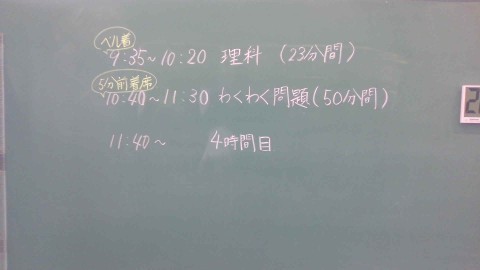 ベル着
9:35~10:20 理科 (23分間)
5分前着席
10:40~11:30 わくわく問題(50分間)
11:40~ 4時間目